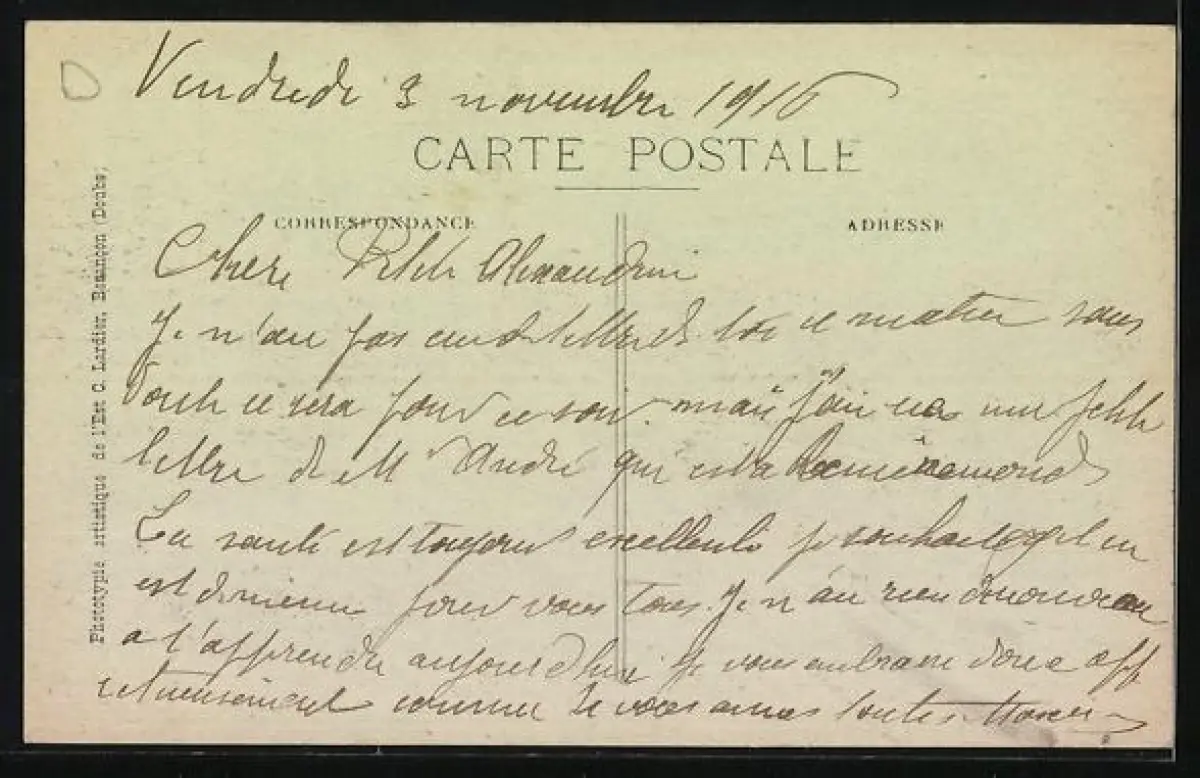 Vendredi 3 novembre 1916
CARTE POSTALE
CORRESPONDANCE
ADRESSE
Chere Petite Alexandrine
Je n'ai pas eu de lettre de toi ce matin sans
doute ce sera pour ce soir. mais j'ai eu une petite
lettre de Mr André qui est a
La santé est toujours excellente je souhaite qu'il en
est de meme pour vous tous. Je n'ai rien de nouveau
a t'apprendre aujourd'hui Je vous embrasse donc aff
ectueusement comme je vous aimes toutes
Phototypie artistique de l'Est C. Lardier, Besançon (Doubs)